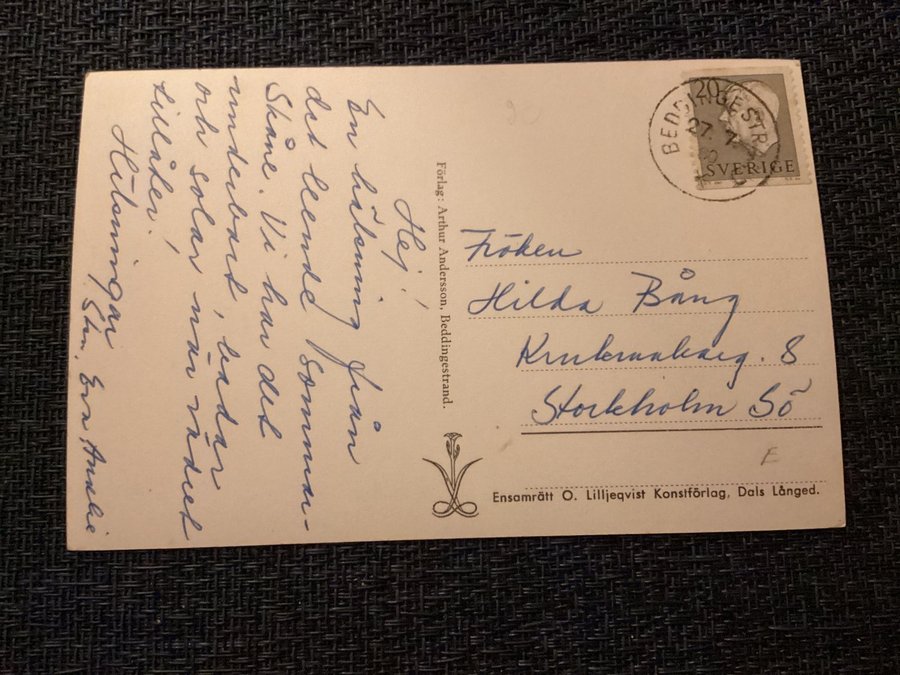 Hej!
En hälsning från
det leende Sommar-
Skåne. Vi har det
underbart, badar
och solar när vädret
tillåter!
Hälsningar
Sten, Eva
Förlag: Arthur Andersson, Beddingestrand.
20
SVERIGE
BEDDINGESTRAND
27. 7
Fröken
Hilda Bång
Krukmakareg. 8
Stockholm Sö
E
Ensamrätt O. Lilljeqvist Konstförlag, Dals Långed.